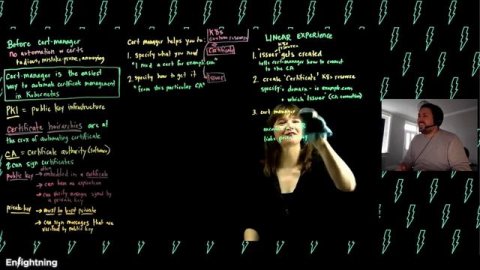 Before cert-manager
no automation w certs
tedious, mistake-prone, annoying
Cert-manager is the easiest
way to automate certificate management
in Kubernetes
PKI = public key infrastructure
Certificate heirarchies are at
the core of automating certificate
CA = Certificate authority (software)
can sign certificates
public key → embedded in a certificate
→ can have an expiration
→ can verify messages signed by
a private key
private key → must be kept private
→ can sign messages that are
verified by public key
Cert manager helps you to:
1. specify what you need
"I need a cert for example.com"
2. specify how to get it
"from this particular CA"
K8s
custom resources
Certificate
Issuer
LINEAR EXPERIENCE
K8s
resource
1. issuer gets created
tells cert-manager how to connect
to the CA
2. create 'Certificate' K8s resource
specifies → domain - ie example.com
→ which Issuer (CA connection)
3. cert manager
Enlightning